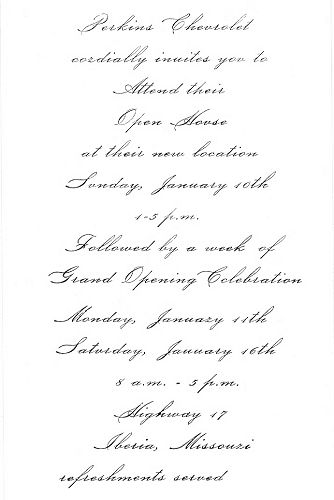 Perkins Chevrolet
cordially invites you to
Attend their
Open House
at their new location
Sunday, January 10th
1-5 p.m.
Followed by a week of
Grand Opening Celebration
Monday, January 11th
Saturday, January 16th
8 a.m. - 5 p.m.
Highway 17
Iberia, Missouri
refreshments served